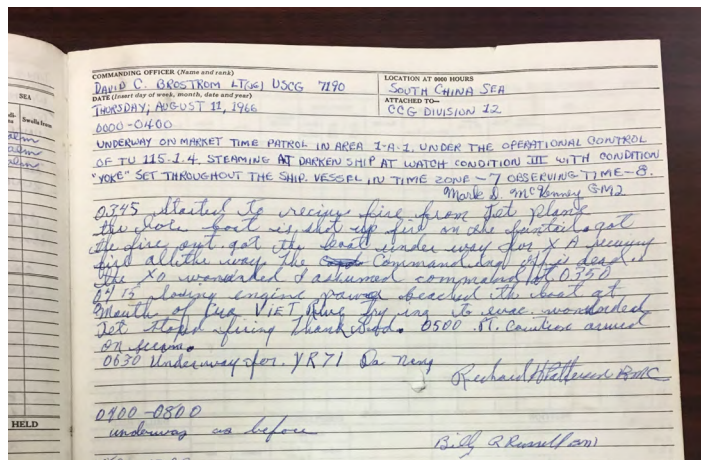 SEA
Swells from
COMMANDING OFFICER (Name and rank)
DAVID C. BROSTROM LT(JG) USCG 7190
LOCATION AT 0000 HOURS
SOUTH CHINA SEA
DATE (Insert day of week, month, date and year)
THURSDAY, AUGUST 11, 1966
ATTACHED TO—
CCG DIVISION 12
0000-0400
UNDERWAY ON MARKET TIME PATROL IN AREA 1-A-1, UNDER THE OPERATIONAL CONTROL
OF TU 115.1.4, STEAMING AT DARKEN SHIP AT WATCH CONDITION III WITH CONDITION
"YOKE" SET THROUGHOUT THE SHIP. VESSEL IN TIME ZONE -7 OBSERVING TIME -8.
Mark D. McKenney GM2
0345 Started to recive fire from Jet plane
the boat is shot up fire on the fantail got
the fire out got the boat under way for
fire all the way The Commanding off is dead
the XO wonded I assumed command at 0350
0415 losing engine power beached the boat at
Mouth of Cua VIET River trying to evac. wonded
Jet stoped firing thank God. 0500 Pt. Caution arived
on scene.
0630 Underway for YR71 Da Nang
Richard H Patterson BMC
0400-0800
underway as before
Billy R Russell
HELD